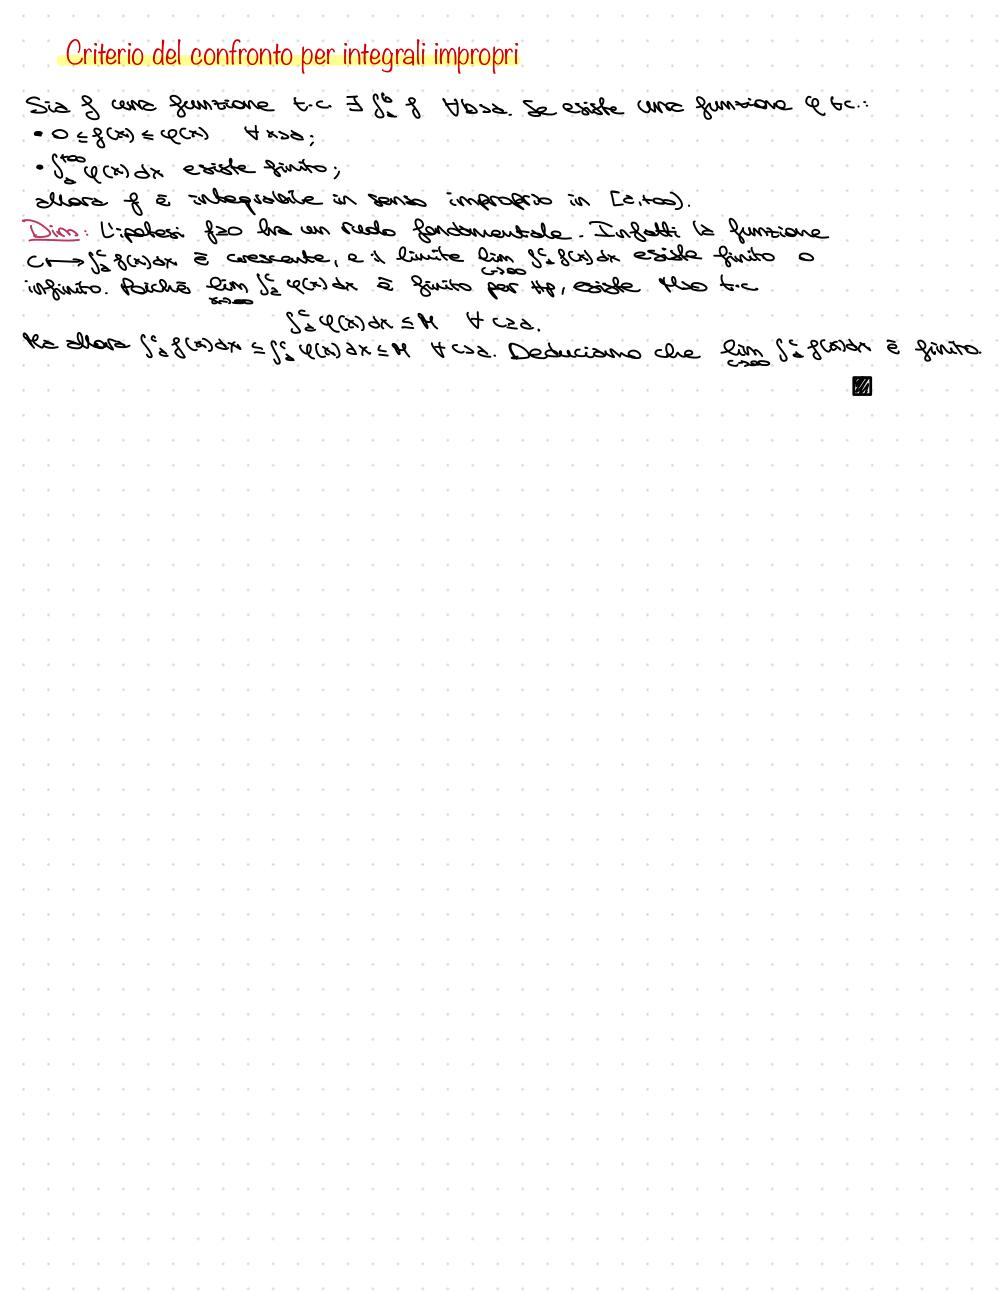 Criterio del confronto per integrali impropri
Sia f una funzione t.c. ∃ ∫_a^b f ∀b>a. Se esiste una funzione φ t.c.:
• 0 ≤ f(x) ≤ φ(x) ∀x>a;
• ∫_a^{+∞} φ(x) dx esiste finito;
allora f è integrabile in senso improprio in [a,+∞).
Dim: L'ipotesi f≥0 ha un ruolo fondamentale. Infatti la funzione
c ↦ ∫_a^c f(x)dx è crescente, e il limite lim_{c→∞} ∫_a^c f(x)dx esiste finito o
infinito. Poiché lim_{x→∞} ∫_a^c φ(x)dx è finito per Hp, esiste M>0 t.c
∫_a^c φ(x)dx ≤ M ∀ c≥a.
Ma allora ∫_a^c f(x)dx ≤ ∫_a^c φ(x)dx ≤ M ∀ c>a. Deduciamo che lim_{c→∞} ∫_a^c f(x)dx è finito.